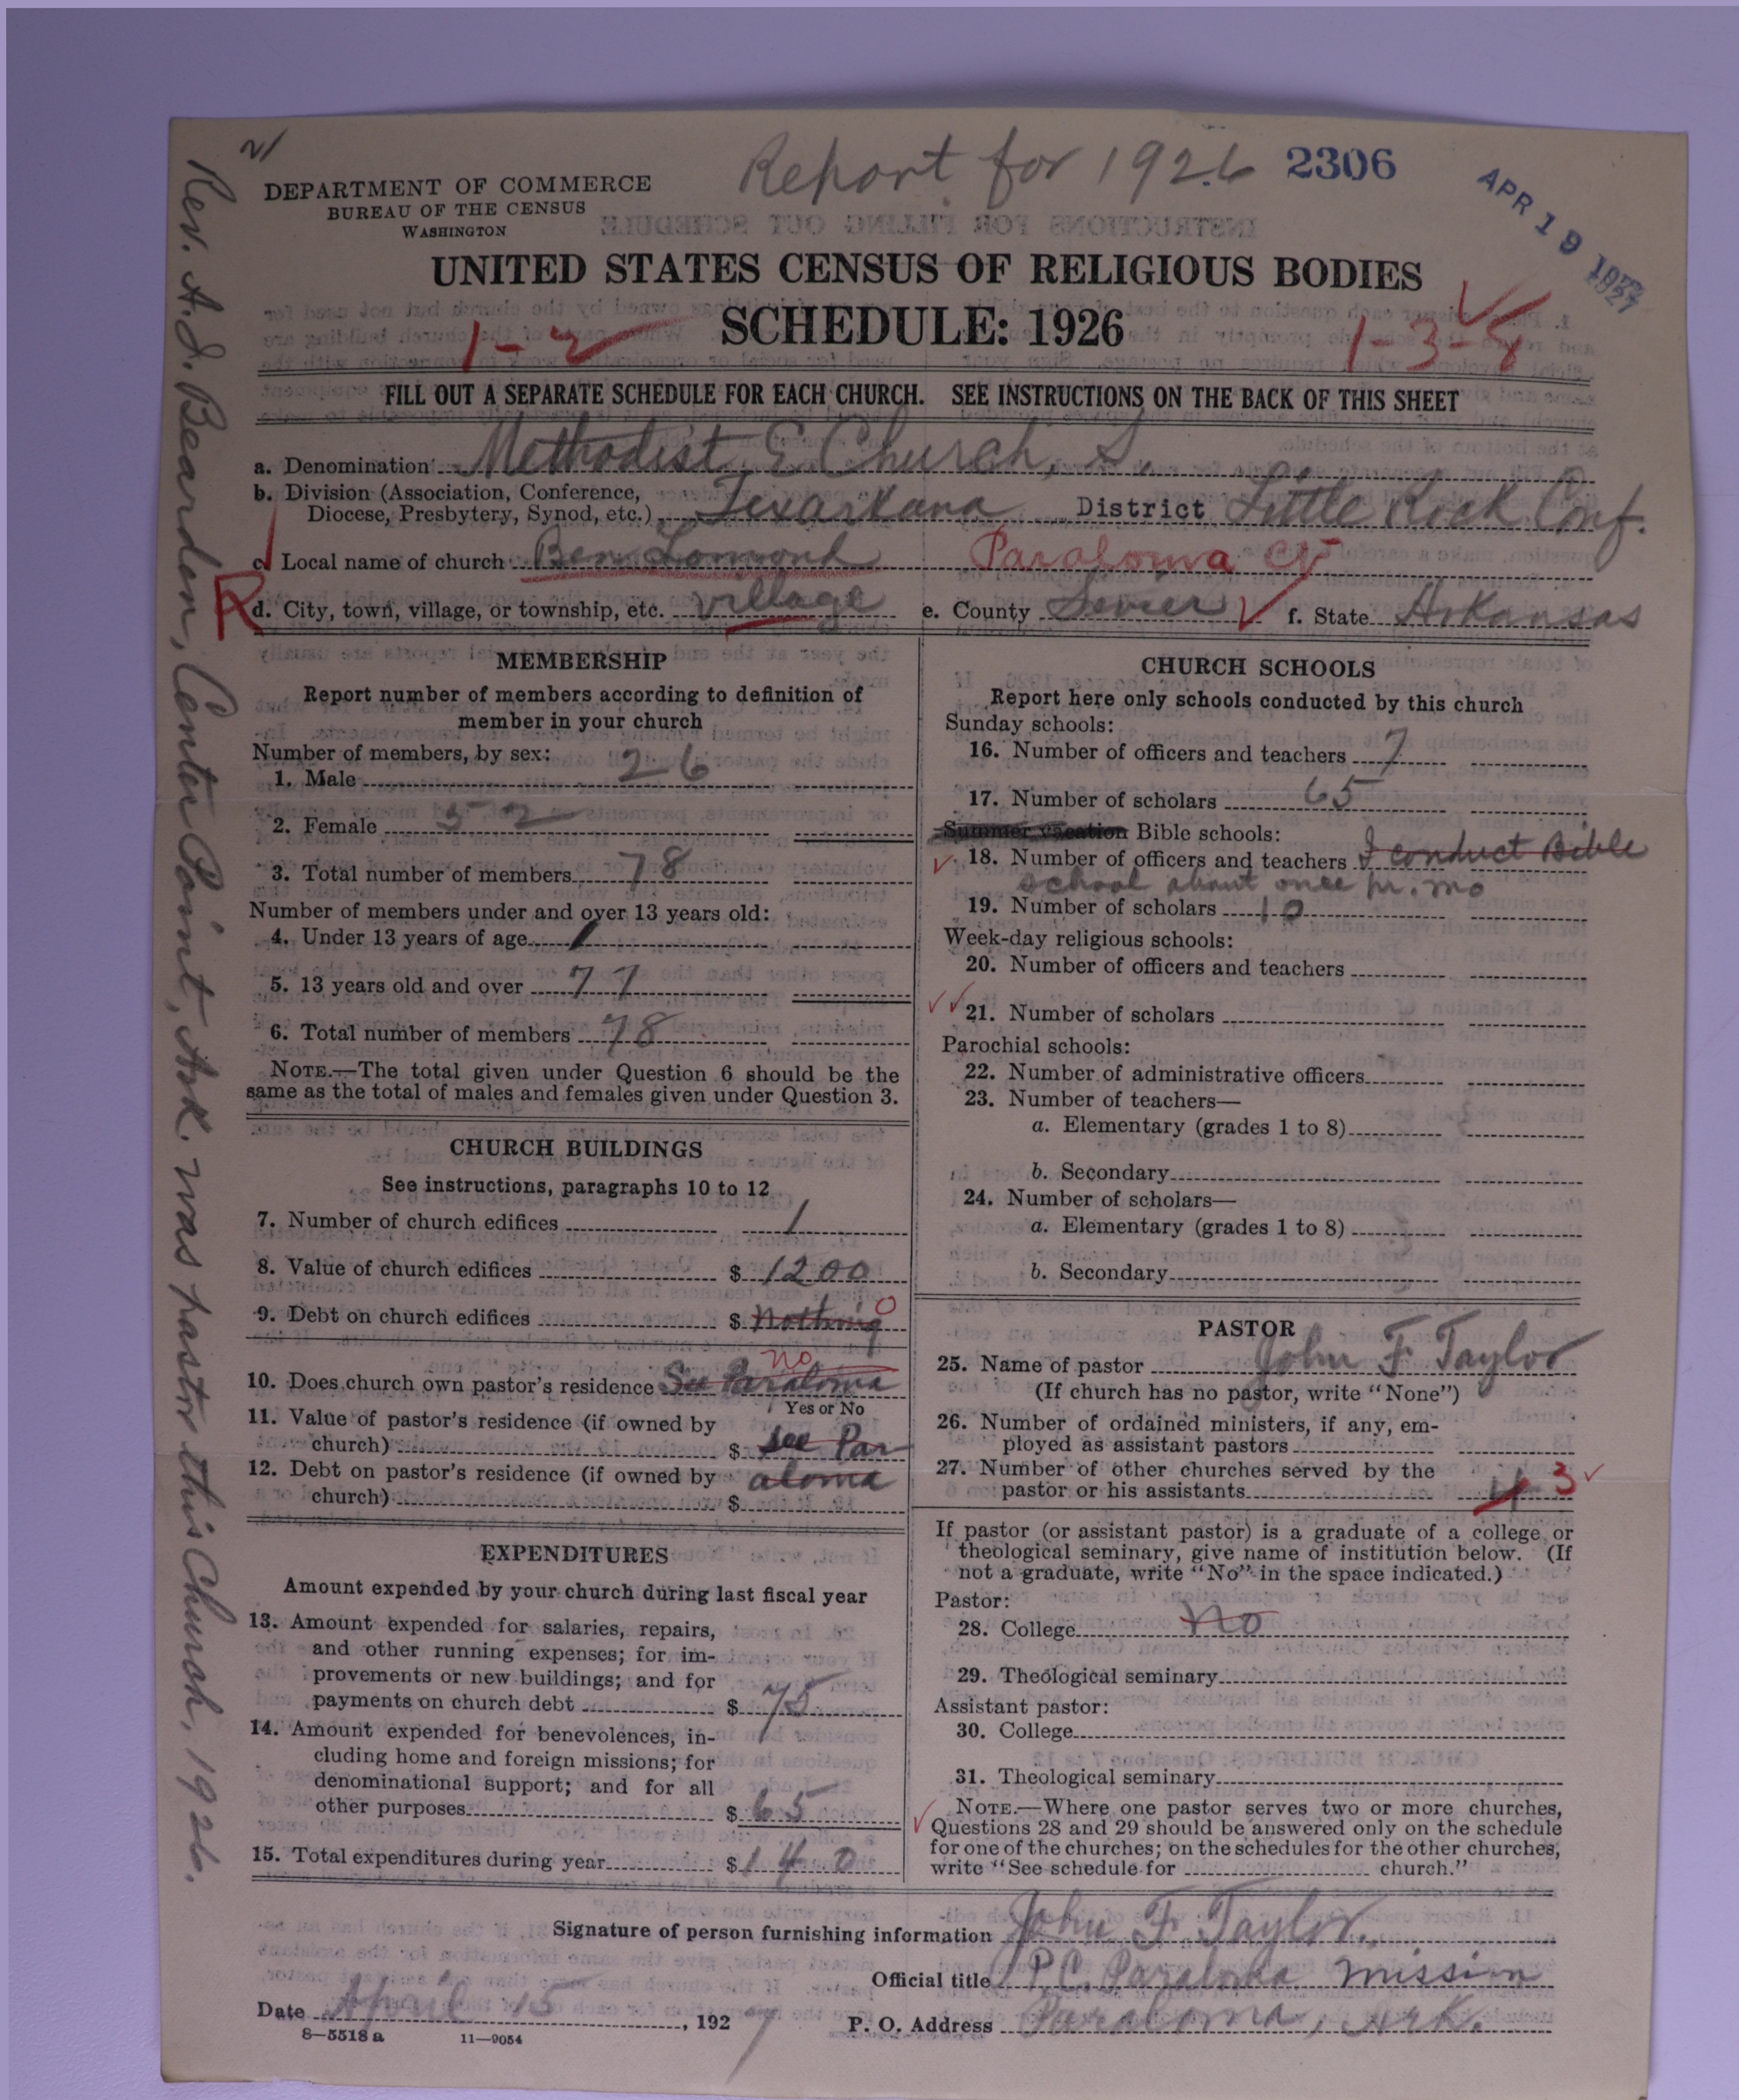 Report for 1926 2306
APR 19 1927
DEPARTMENT OF COMMERCE
BUREAU OF THE CENSUS
WASHINGTON
UNITED STATES CENSUS OF RELIGIOUS BODIES
SCHEDULE: 1926
1-2
1-3-8
FILL OUT A SEPARATE SCHEDULE FOR EACH CHURCH. SEE INSTRUCTIONS ON THE BACK OF THIS SHEET
a. Denomination Methodist E Church, S.
b. Division (Association, Conference,
Diocese, Presbytery, Synod, etc.) Texarkana District Little Rock Conf.
c. Local name of church Ben Lomond Paraloma
R
d. City, town, village, or township, etc. village e. County Sevier f. State Arkansas
MEMBERSHIP
Report number of members according to definition of
member in your church
Number of members, by sex:
1. Male 26
2. Female 52
3. Total number of members 78
Number of members under and over 13 years old:
4. Under 13 years of age 1
5. 13 years old and over 77
6. Total number of members 78
NOTE.—The total given under Question 6 should be the
same as the total of males and females given under Question 3.
CHURCH BUILDINGS
See instructions, paragraphs 10 to 12
7. Number of church edifices 1
8. Value of church edifices $ 1200
9. Debt on church edifices $ nothing 0
no
10. Does church own pastor's residence See Paraloma
Yes or No
11. Value of pastor's residence (if owned by
church) $ see Par
12. Debt on pastor's residence (if owned by aloma
church) $
EXPENDITURES
Amount expended by your church during last fiscal year
13. Amount expended for salaries, repairs,
and other running expenses; for im-
provements or new buildings; and for
payments on church debt $ 75
14. Amount expended for benevolences, in-
cluding home and foreign missions; for
denominational support; and for all
other purposes $ 65
15. Total expenditures during year $ 140
CHURCH SCHOOLS
Report here only schools conducted by this church
Sunday schools:
16. Number of officers and teachers 7
17. Number of scholars 65
Summer vacation Bible schools:
18. Number of officers and teachers I conduct Bible
school about once pr. mo
19. Number of scholars 10
Week-day religious schools:
20. Number of officers and teachers
21. Number of scholars
Parochial schools:
22. Number of administrative officers
23. Number of teachers—
a. Elementary (grades 1 to 8)
b. Secondary
24. Number of scholars—
a. Elementary (grades 1 to 8)
b. Secondary
PASTOR
25. Name of pastor John F Taylor
(If church has no pastor, write "None")
26. Number of ordained ministers, if any, em-
ployed as assistant pastors
27. Number of other churches served by the
pastor or his assistants 4 3
If pastor (or assistant pastor) is a graduate of a college or
theological seminary, give name of institution below. (If
not a graduate, write "No" in the space indicated.)
Pastor:
28. College No
29. Theological seminary
Assistant pastor:
30. College
31. Theological seminary
NOTE.—Where one pastor serves two or more churches,
Questions 28 and 29 should be answered only on the schedule
for one of the churches; on the schedules for the other churches,
write "See schedule for church."
Signature of person furnishing information John F. Taylor.
Official title P.C. Paraloma Mission
Date April 15, 1927 P. O. Address Paraloma, Ark.
8—5518 a 11—9054
Rev. A.J. Bearden, Center Point, Ark. was pastor this Church, 1926.